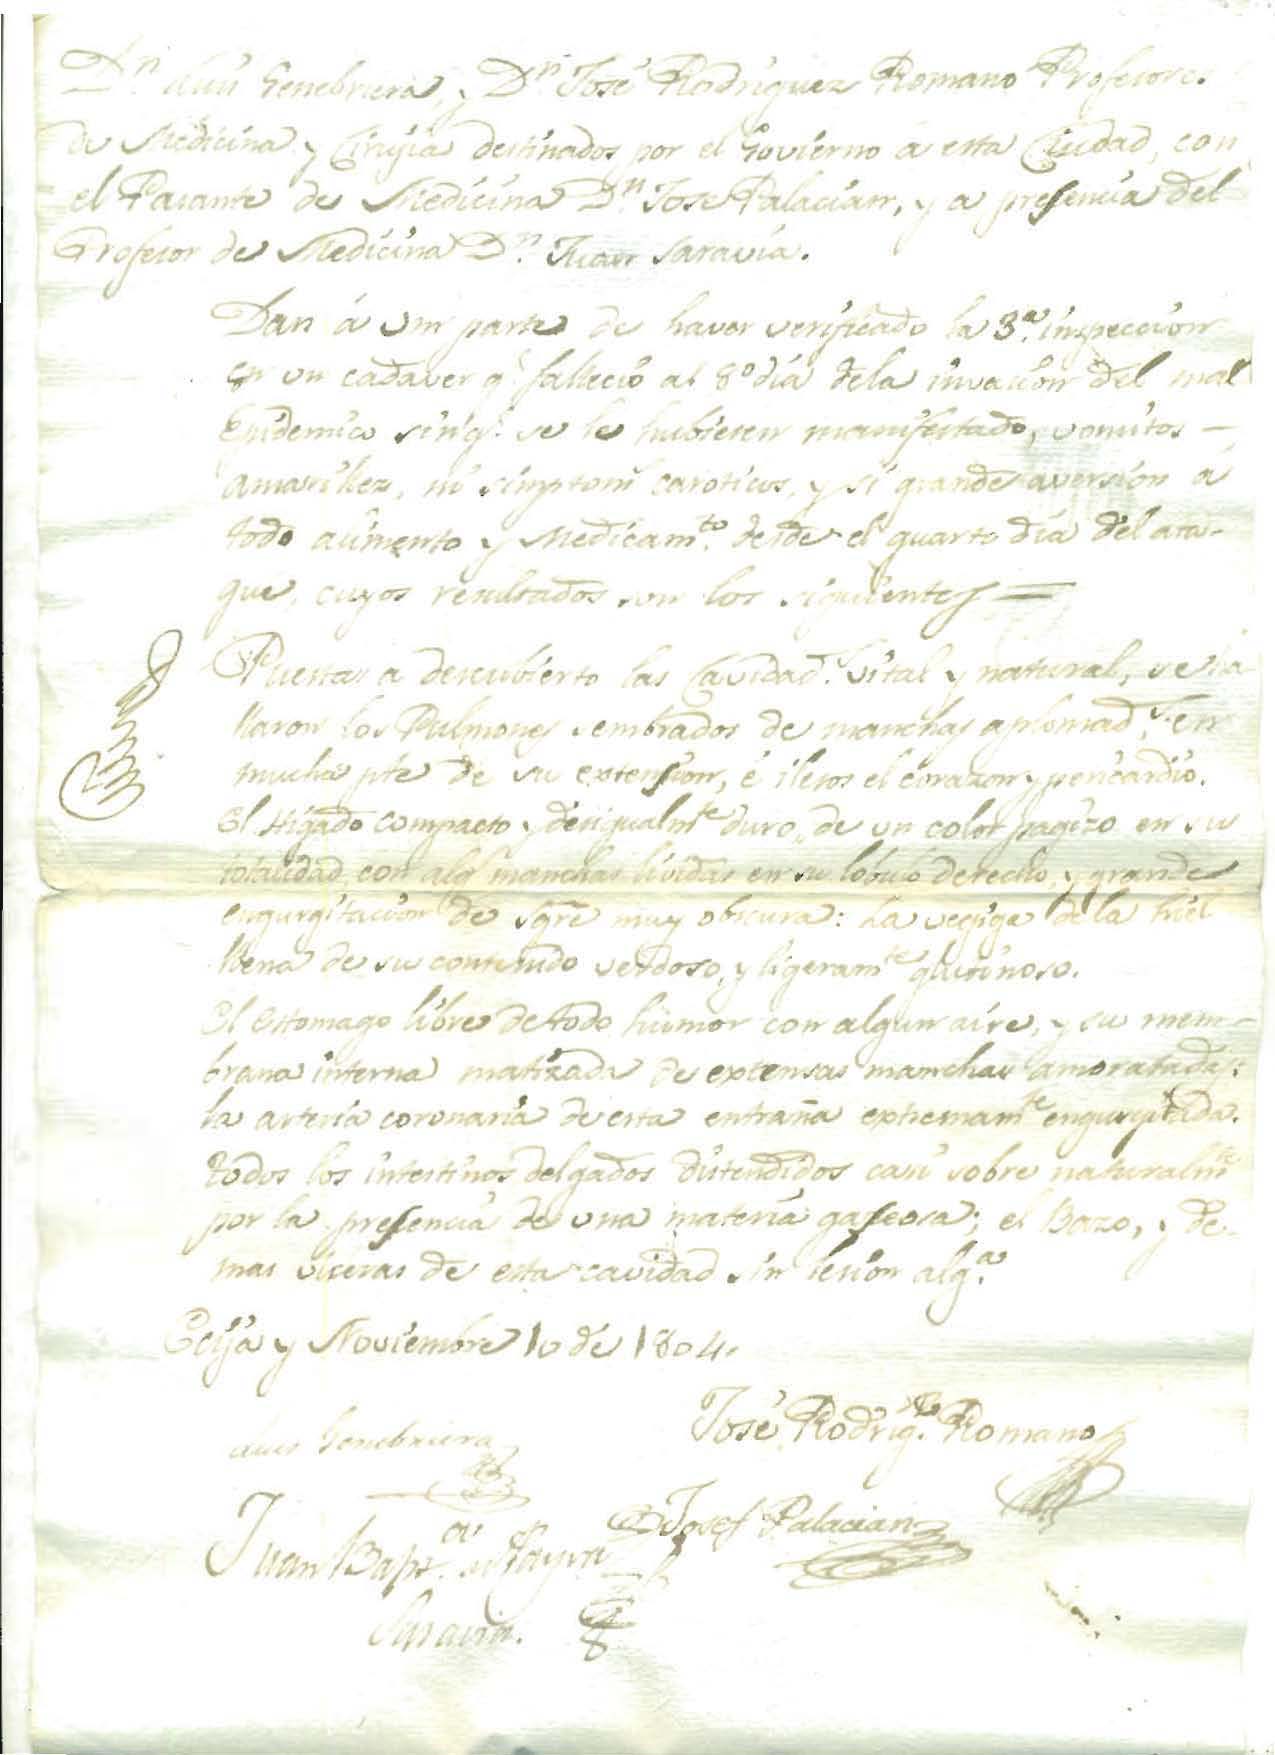 Dn. Luis Genebriera, y Dn. José Rodriguez Romano Profesores
de Medicina y Cirujia destinados por el Govierno á esta Ciudad, con
el Pasante de Medicina Dn. Jose Palacian, y a presencia del
Profesor de Medicina Dn. Juan Saravia.
Dan á Vm parte de haver verificado la 3a. inspeccion
en un cadaver q. falleció al 8o dia dela invacion del mal
Epidemico sin q. se le hubiesen manifestado, vomitos —
amarillez, ni simptom caroticos, y si grande aversion á
todo alimento y Medicamto. desde el quarto dia del ata-
que, cuyos resultados son los siguientes —
Puestas a descubierto las Cavidads. vital y natural, se ha
llaron los Pulmones sembrados de manchas aplomads. en
mucha pte de su extension, é ilesos el corazon y pericardio.
El Higado compacto y desigualmte duro, de un color pagizo en su
totalidad con algs manchas lividas en su lóbulo derecho, y grande
engurgitacion de sgre muy obscura: La vegiga de la hiel
llena de su contenido verdoso, y ligeramte glutinoso.
El Estomago libre de todo humor con algun aire, y su mem-
brana interna matizada de extensas manchas amoratadas:
la arteria coronaria de esta entraña extremamte engurgitada.
todos los intestinos delgados distendidos casi sobre naturalmte
por la presencia de una materia gaseosa; el Bazo, y de-
mas visceras de esta cavidad sin lesion alga.
Ecija y Noviembre 10 de 1804.
José Rodrigz. Romano
Luis Genebriera
Josef Palacian
Juan Bapta.
Saravia.